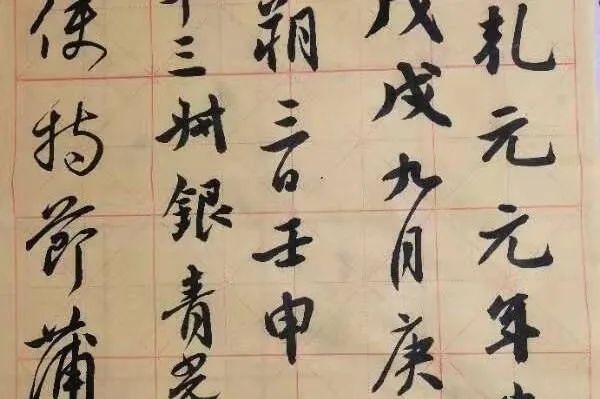 乾元元年
戊戌九月庚
朔三日壬申
十三叔銀青光
使持節蒲